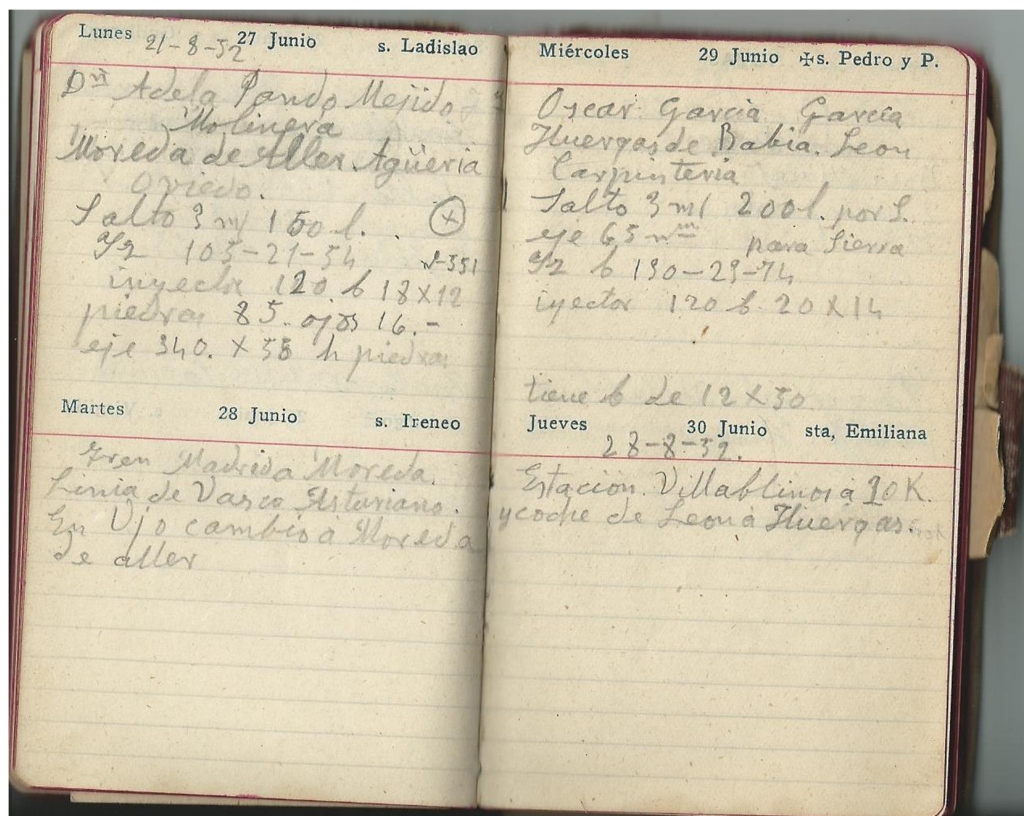 Lunes 27 Junio s. Ladislao
21-8-52
Dª Adela Pando Mejido
Molinera
Moreda de Aller. Agüeria
Oviedo.
Salto 3 m/ 150 l. . +
103-21-54
inyector 120 b 18×12
piedras 85. ojos 16.-
eje 340. × 55 h piedras
Martes 28 Junio s. Ireneo
Tren Madrid a Moreda.
Linia de Vasco Asturiano.
En Ujo cambio a Moreda
de aller
Miércoles 29 Junio ✠s. Pedro y P.
Oscar Garcia Garcia
Huergas de Babia. Leon
Carpinteria
Salto 3 m/ 200 l. por S.
eje 65 mm para Sierra
b 130-29-74
inyector 120 b. 20×14
tiene b de 12×50
Jueves 30 Junio sta, Emiliana
28-8-52.
Estacion. Villablino a 20 K.
y coche de Leon a Huergas.